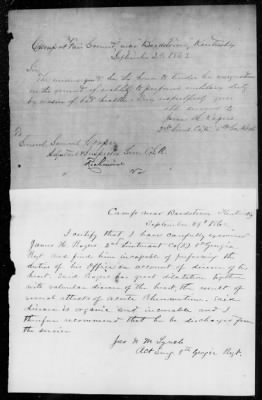 Camp at Fair Ground, near Bardstown, Kentucky
September 29 1862
Sir,
The undersigned has the honor to tender his resignation
on the ground of inability to perform military duty
by reason of bad health. Very respectfully your
obt servant
James H. Rogers
To
General Samuel Cooper
Adjutant & Inspector Genl C.S.A.
Richmond
Va
Camp near Bardstown Kentucky
September 29th 1862
I certify that I have carefully examined
James H. Rogers 2nd Lieutenant Co (K) 5th Georgia
Regt. and find him incapable of performing the
duties of his Office on account of disease of his
heart. Said Rogers has great dilatation together
with valvular disease of the heart, the result of
several attacks of Acute Rheumatism. Said
disease is organic and incurable and I
therefore recommend that he be discharged from
the service
Jno N. M. Lynch
Act Surg. 5th Georgia Regt.